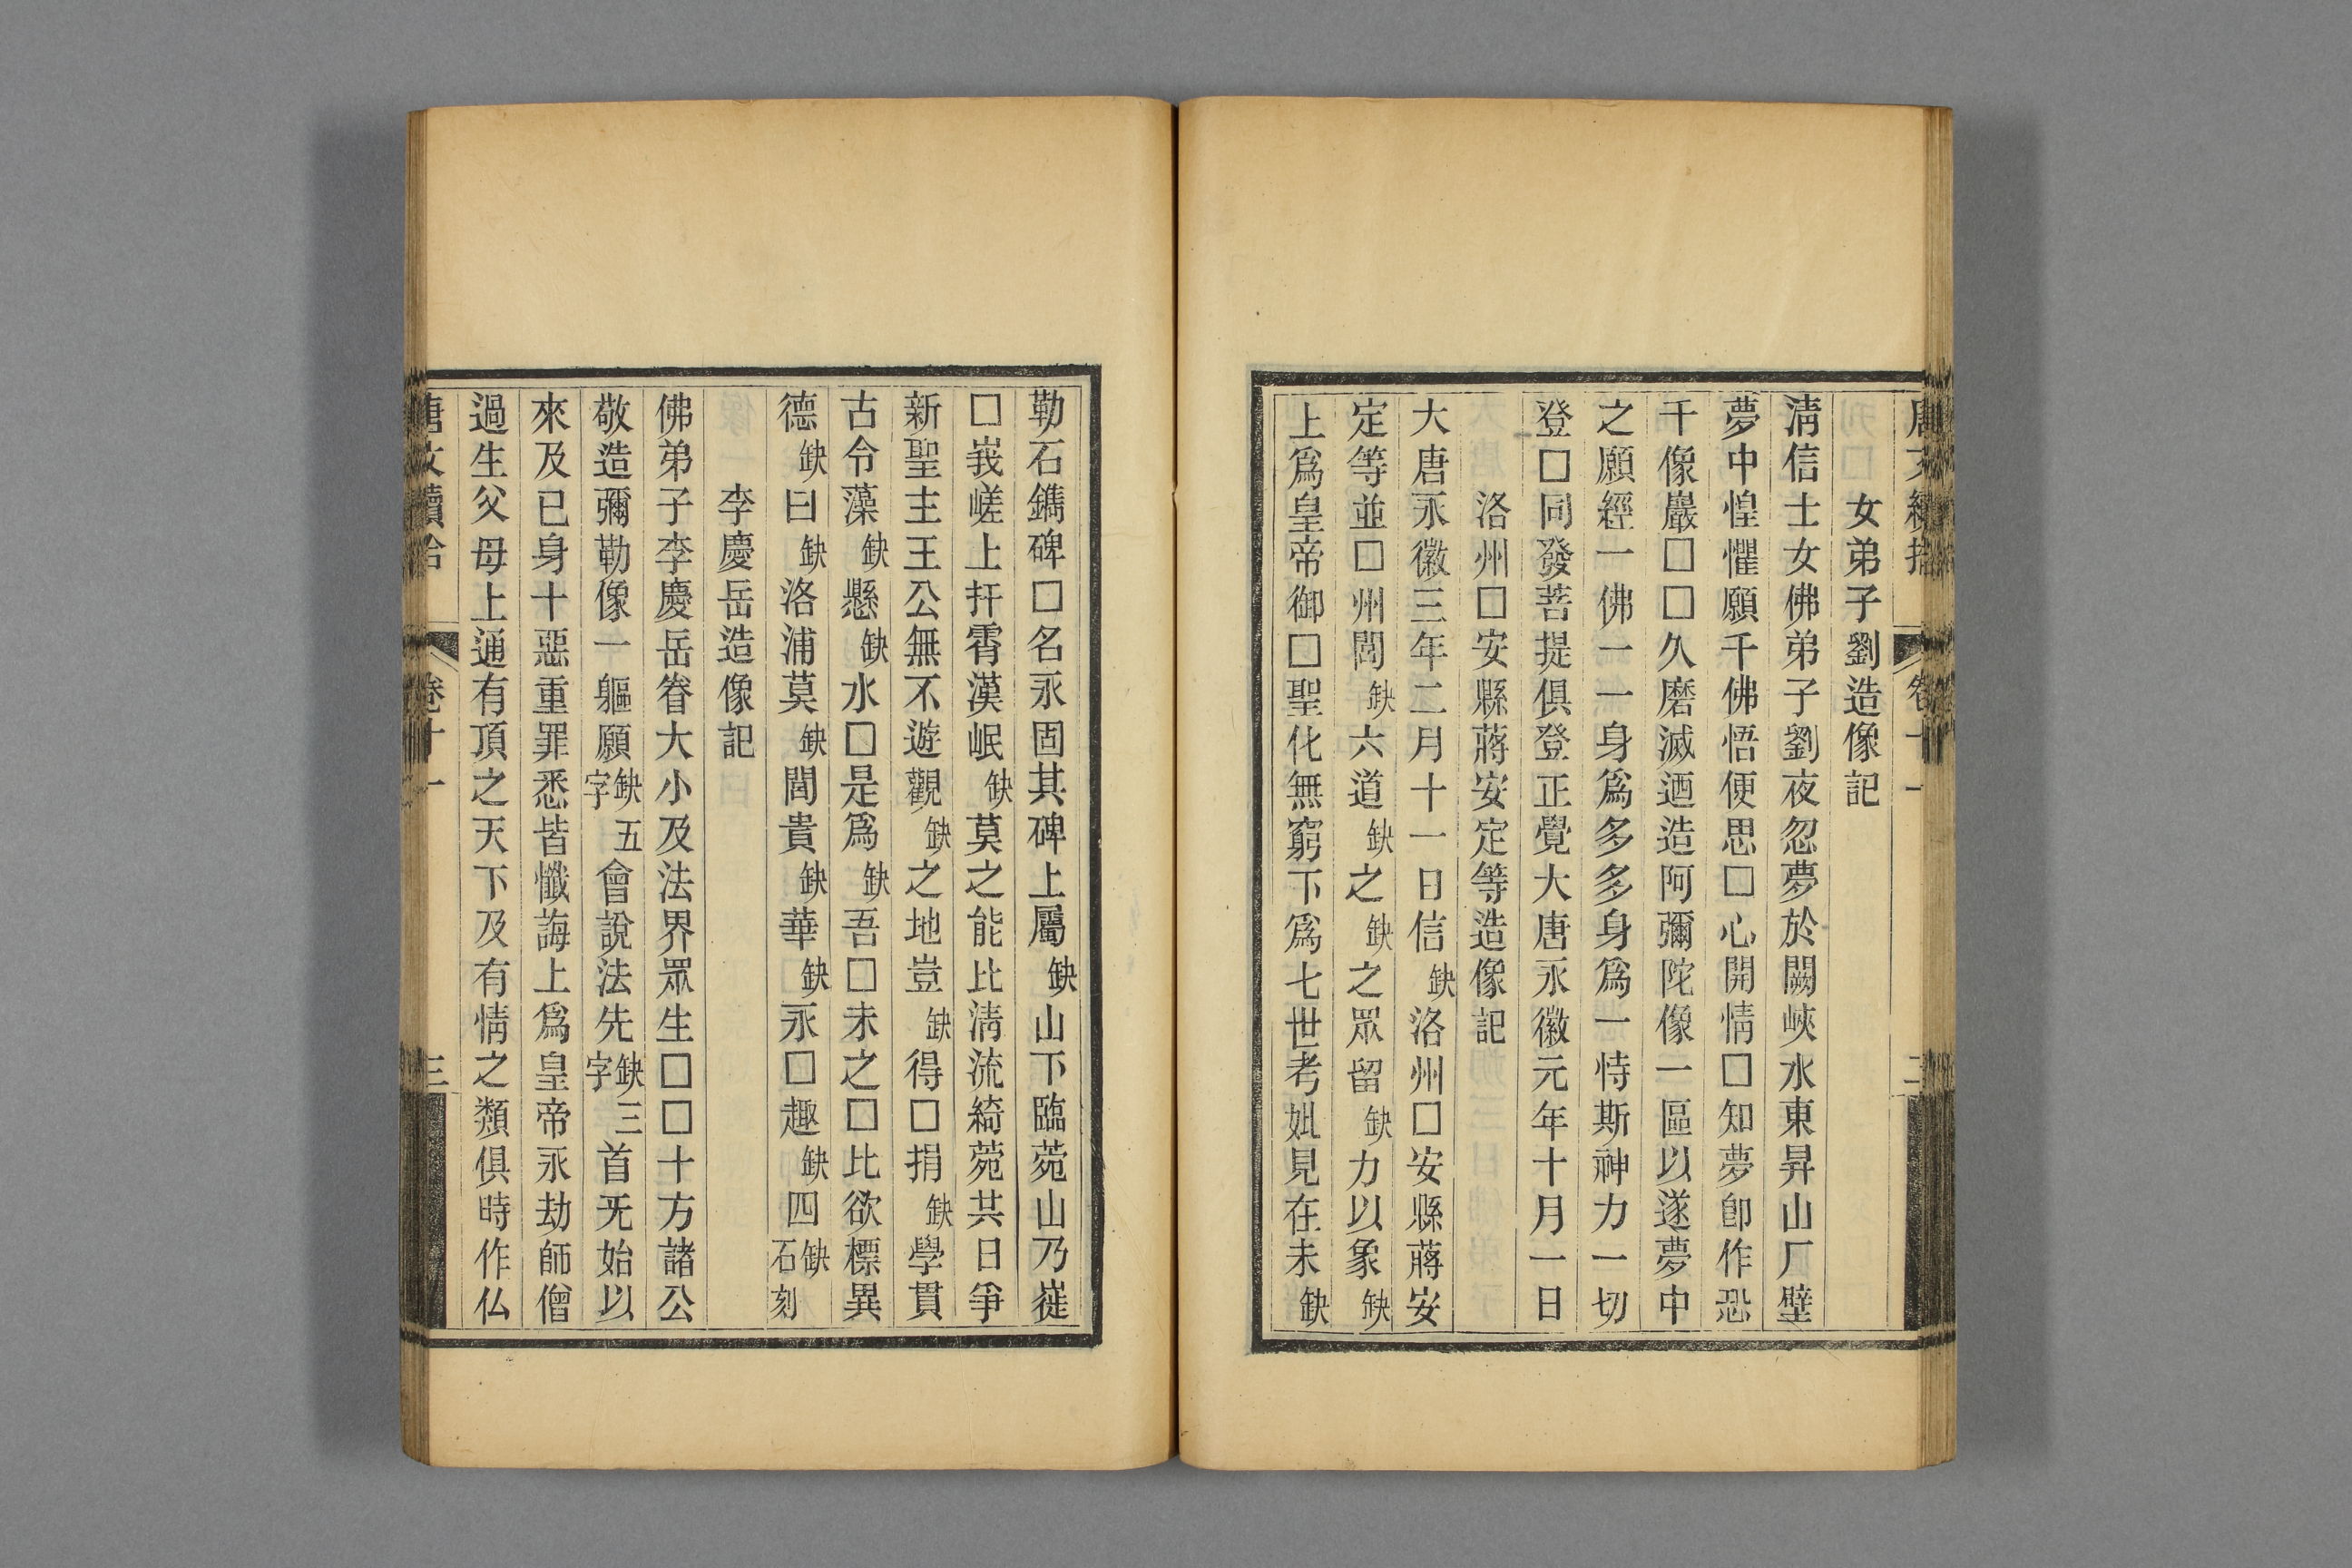 唐文續拾 卷十一 二
女弟子劉造像記
淸信士女佛弟子劉夜忽夢於闕峽水東昇山厂壁
夢中惶懼願千佛悟便思□心開情□知夢卽作恐
千像嚴□□久磨滅迺造阿彌陀像一區以遂夢中
之願經一佛一一身爲多多身爲一恃斯神力一切
登□同發菩提俱登正覺大唐永徽元年十月一日
洛州□安縣蔣安定等造像記
大唐永徽三年二月十一日信缺洛州□安縣蔣安
定等並□州閭缺六道缺之缺之眾留缺力以象缺
上爲皇帝御□聖化無窮下爲七世考妣見在未缺
勒石鐫碑□名永固其碑上屬缺山下臨菀山乃嵳
□峩嵯上扞霄漢岷缺莫之能比淸流綺菀共日爭
新聖主王公無不遊觀缺之地豈缺得□捐缺學貫
古今藻缺懸缺水□是爲缺吾□未之□比欲標異
德缺曰缺洛浦莫缺閭貴缺華缺永□趣缺四缺石刻
李慶岳造像記
佛弟子李慶岳眷大小及法界眾生□□十方諸公
敬造彌勒像一軀願缺五字會說法先缺三字首旡始以
來及已身十惡重罪悉皆懺誨上爲皇帝永劫師僧
過生父母上通有頂之天下及有情之類俱時作仏
唐文續拾 卷十一 三